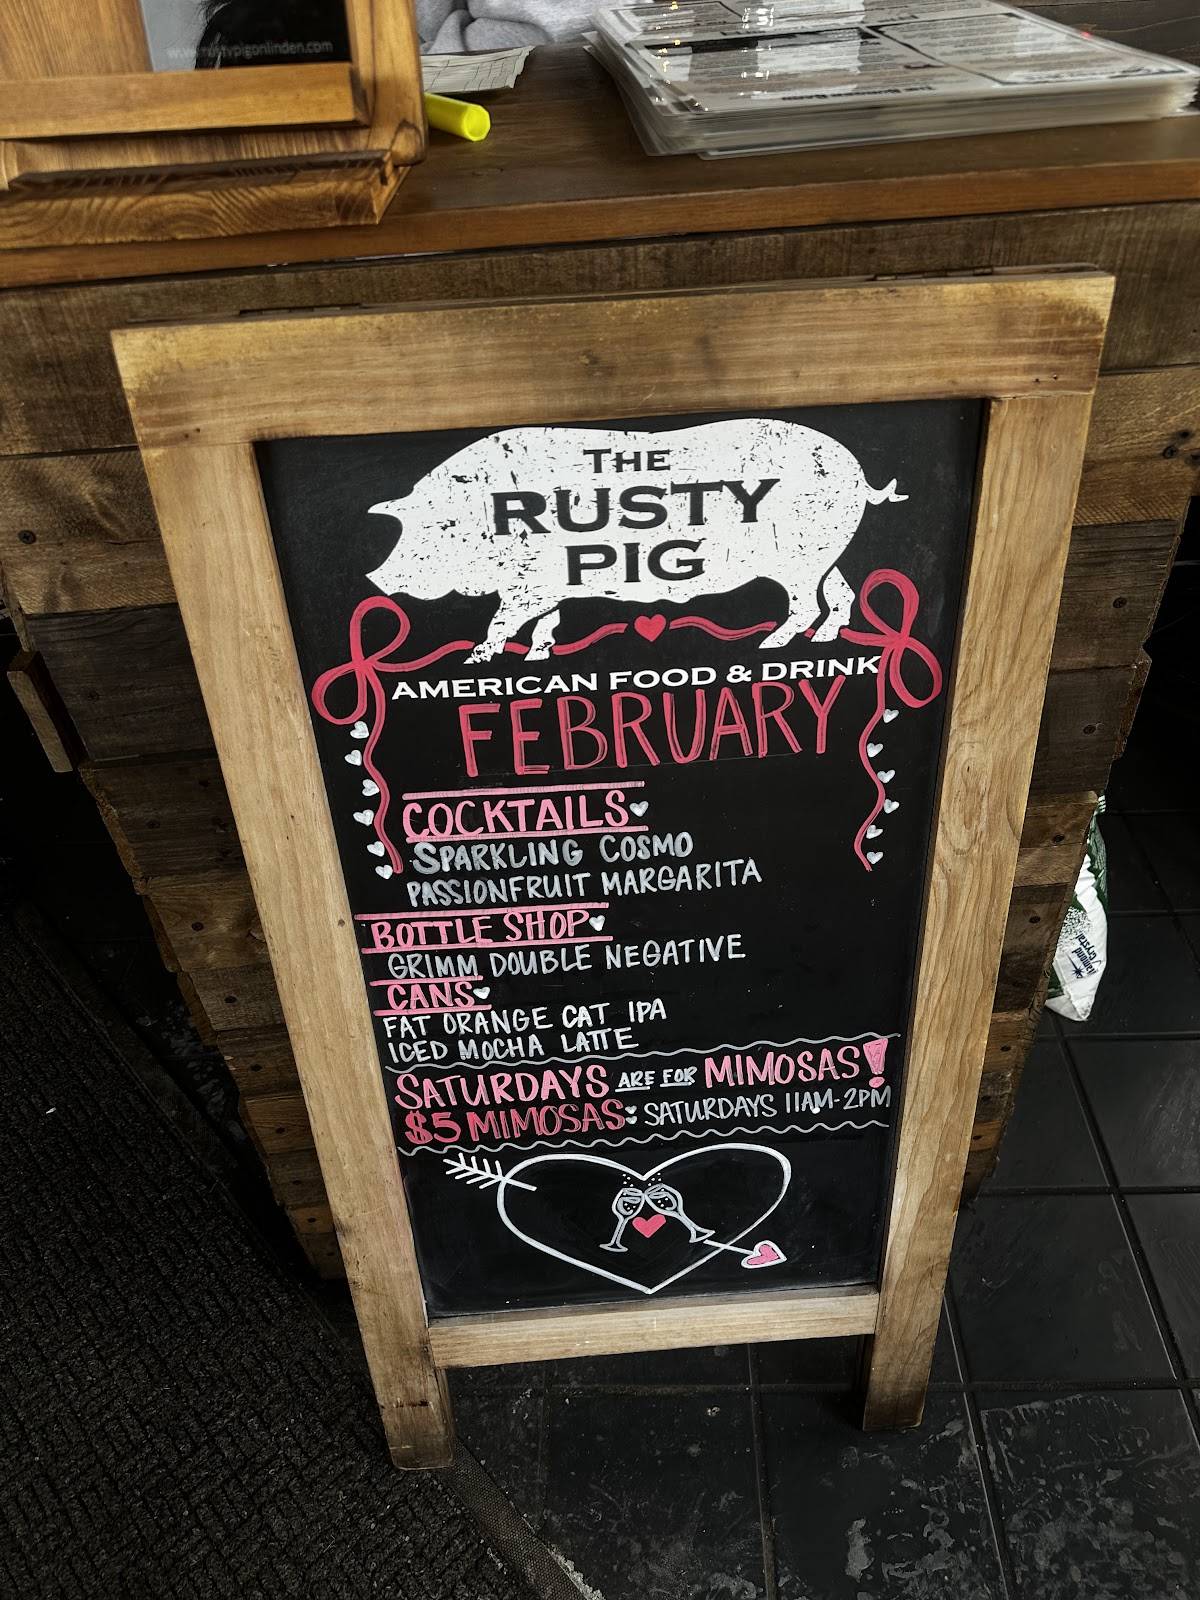 www.rustypigonlinden.com
THE
RUSTY
PIG
AMERICAN FOOD & DRINK
FEBRUARY
COCKTAILS
SPARKLING COSMO
PASSIONFRUIT MARGARITA
BOTTLE SHOP
GRIMM DOUBLE NEGATIVE
CANS
FAT ORANGE CAT IPA
ICED MOCHA LATTE
SATURDAYS ARE FOR MIMOSAS!
$5 MIMOSAS: SATURDAYS 11AM-2PM
Diamond
Crystal